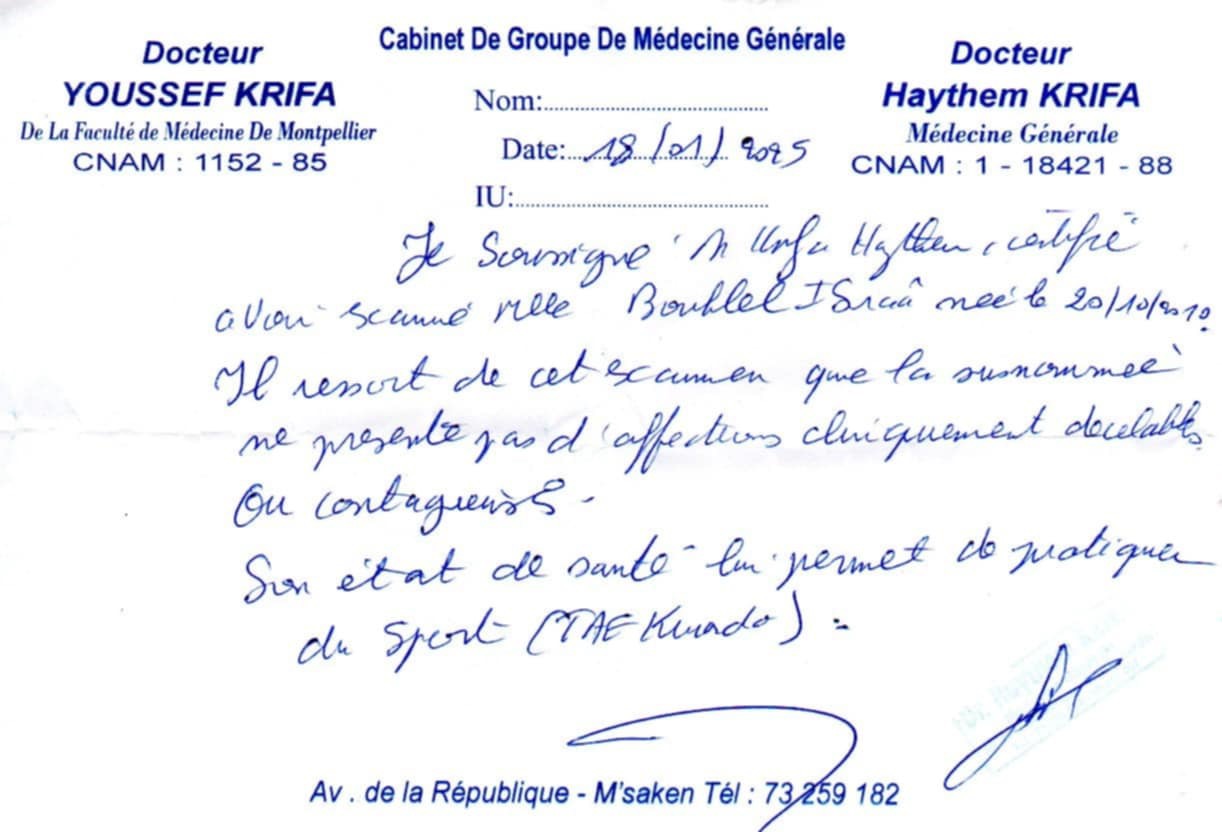 Cabinet De Groupe De Médecine Générale
Docteur
YOUSSEF KRIFA
De La Faculté de Médecine De Montpellier
CNAM : 1152 - 85
Nom:
Date: 18/01/2025
IU:
Docteur
Haythem KRIFA
Médecine Générale
CNAM : 1 - 18421 - 88
Je Soussigné Krifa Haythem, certifie
avoir examiné Melle Bouhlel ISraâ née le 20/10/2010
Il ressort de cet examen que la susnommée
ne présente pas d'affections cliniquement décelables
Ou contagieuses -
Son état de santé lui permet de pratiquer
du Sport (TAEKwondo) .
Av . de la République - M'saken Tél : 73 259 182